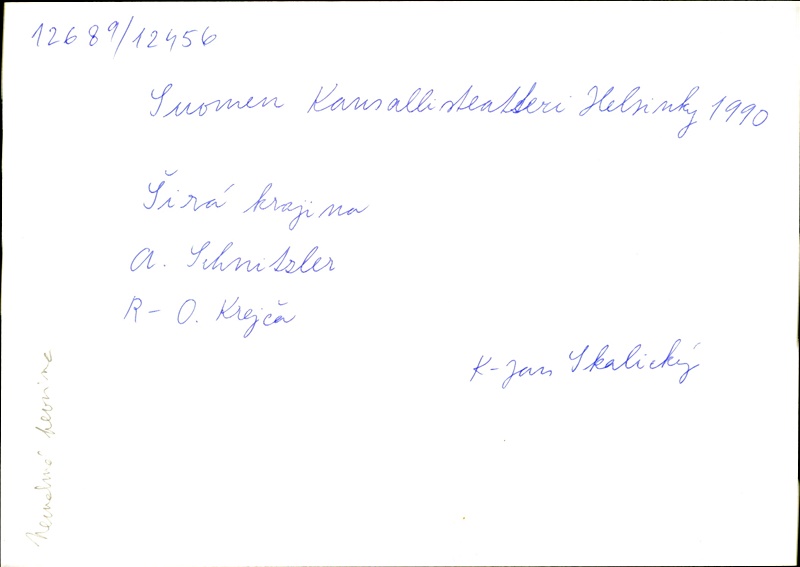 12689/12456
Suomen Kansallisteatteri Helsinky 1990
Širá krajina
A. Schnitzler
R- O. Krejča
K- Jan Skalický